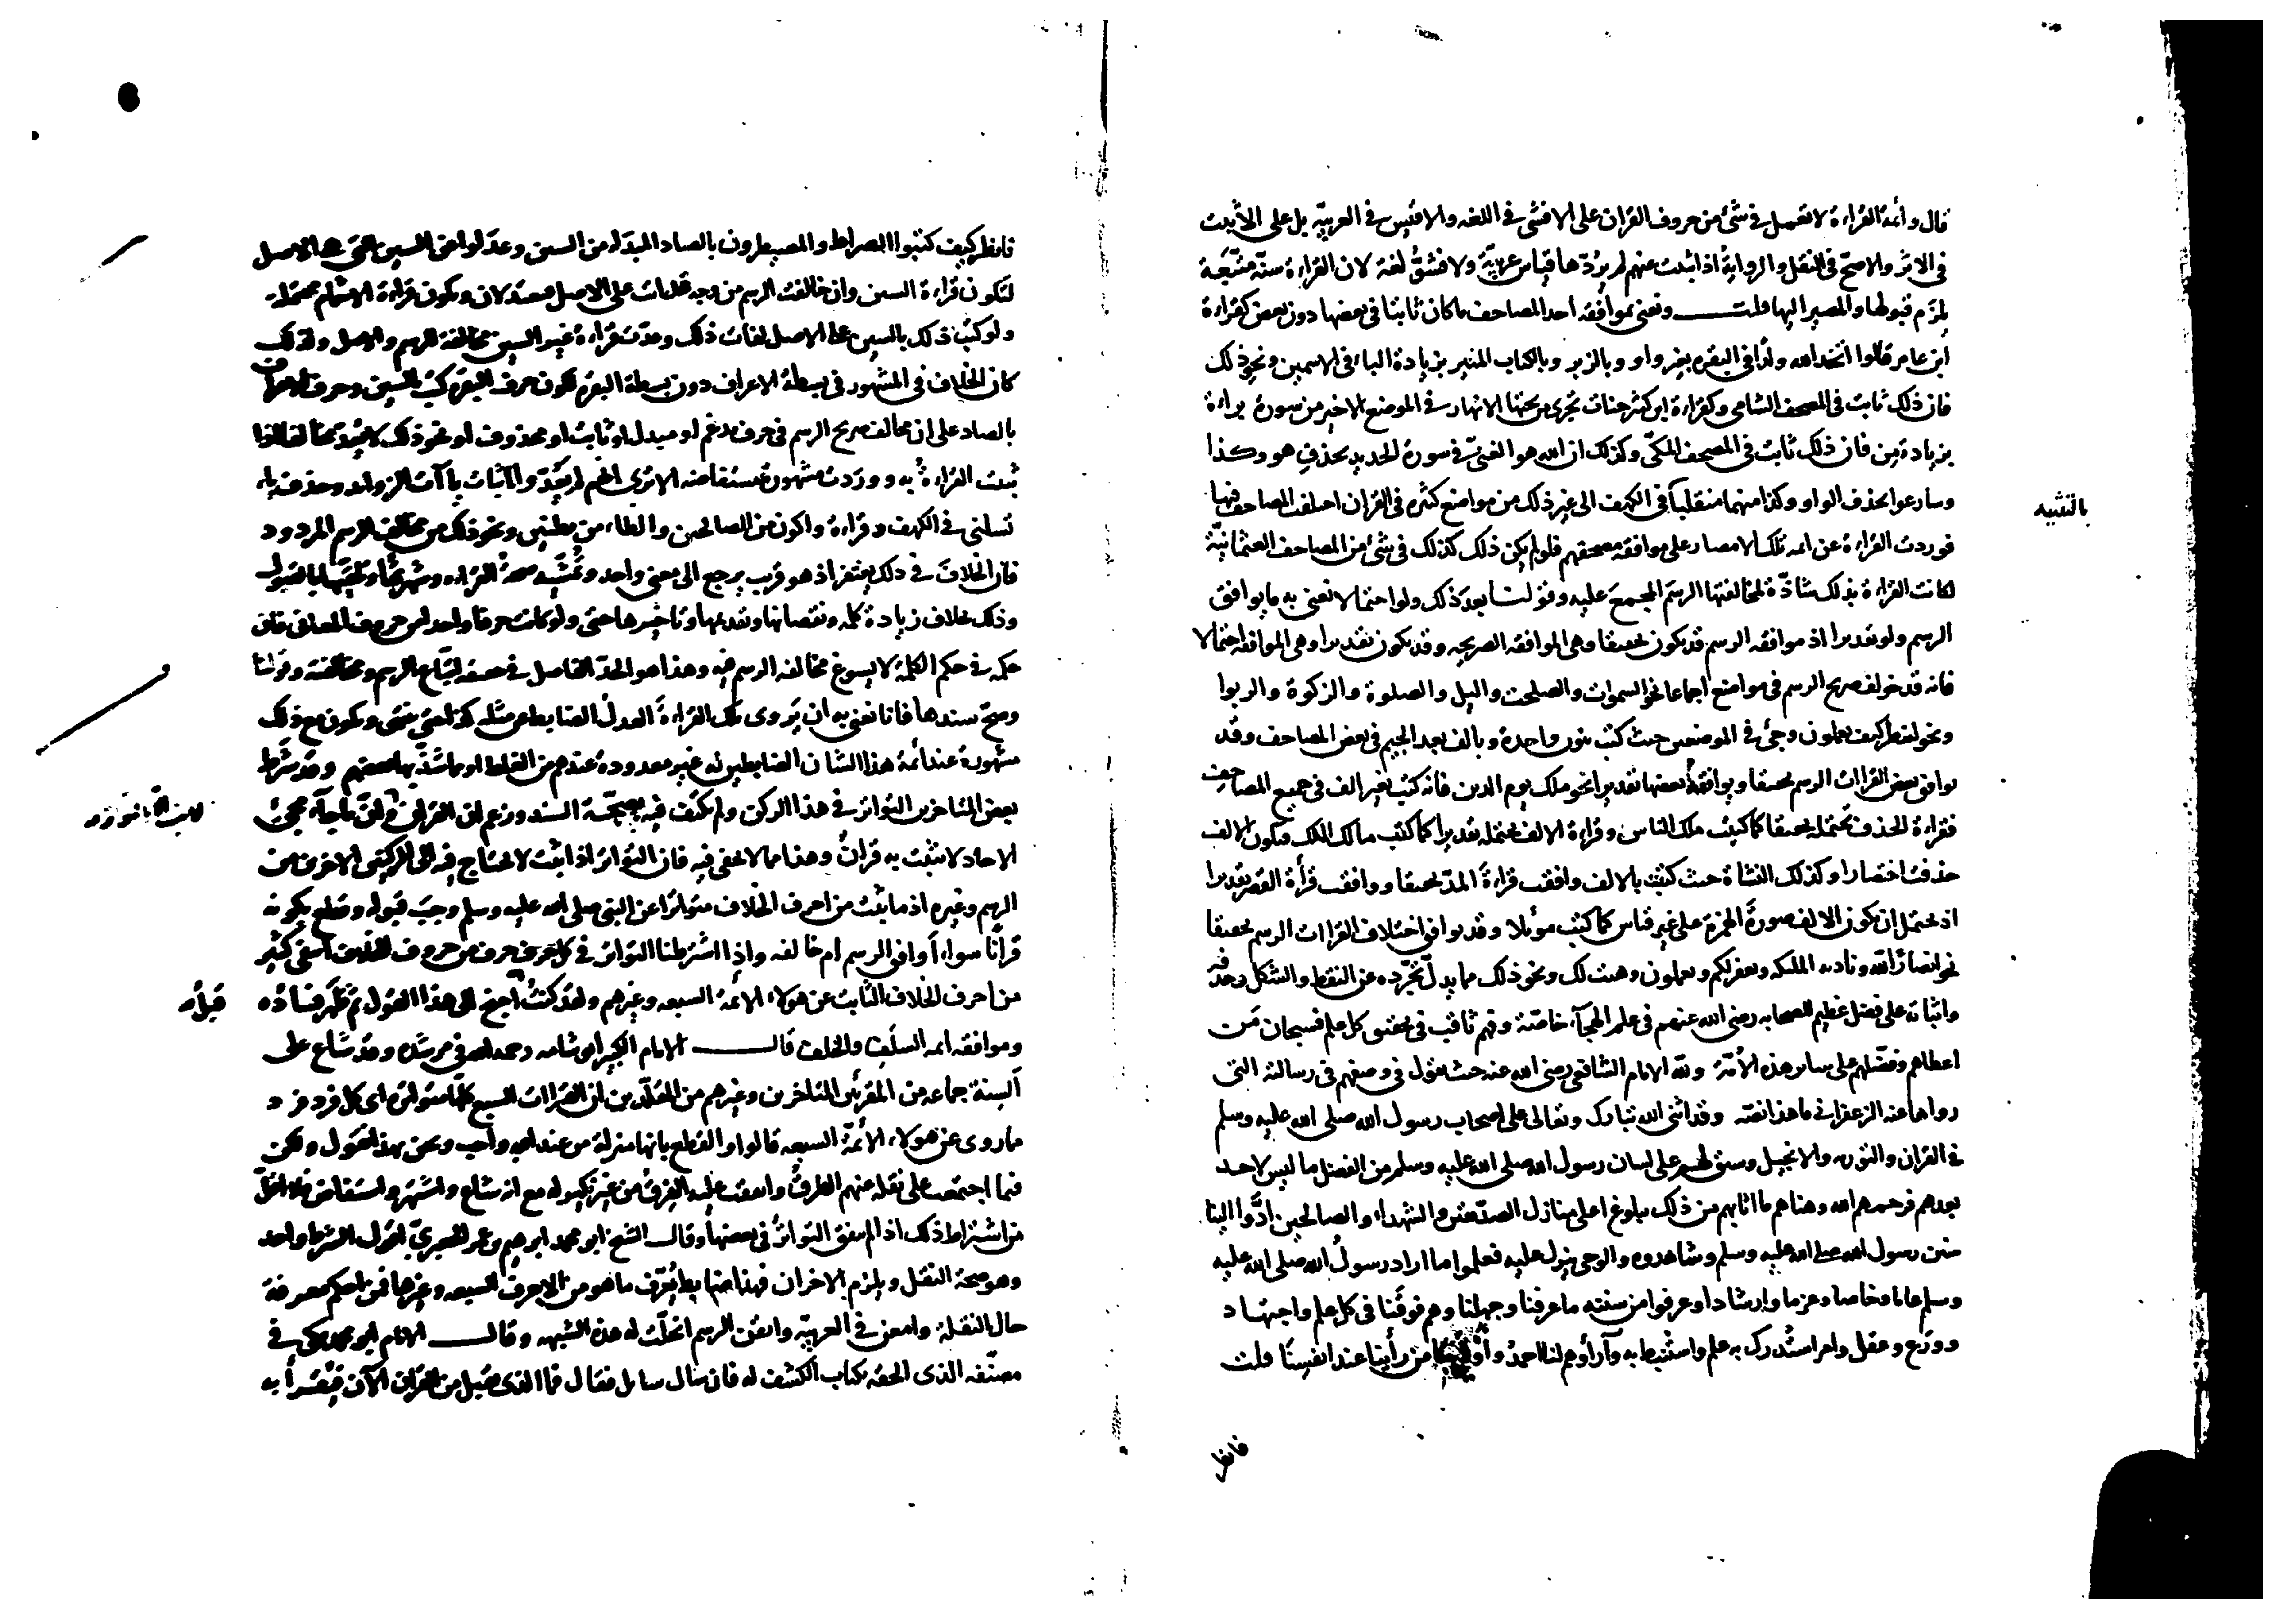 قال وأئمة القراءة لا تعمل في شئ من حروف القران على الافشى في اللغه والاقيس في العربيّه بل على الأثبت
في الاثر والاصحّ في النقل والرواية اذا ثبت عنهم لم يردّها قياس عربيّة ولا فشوّ لغة لان القراءة سنّة متّبعة
يلزم قبولها والمصير اليها قلت ونعني بموافقه احد المصاحف ما كان ثابتا في بعضها دون بعض كقراءة
ابن عامر قالوا اتخذ الله ولدًا في البقره بغير واو وبالزبر وبالكتاب المنير بزيادة الباء في الاسمين ونحو ذلك
فان ذلك ثابت في المصحف الشامي وكقراءة ابن كثير جنات تجري من تحتها الانهار في الموضع الاخير من سورة براءة
بزيادة من فان ذلك ثابت في المصحف المكّي وكذلك ان الله هو الغنيّ في سورة الحديد بحذف هو وكذا
وسارعوا بحذف الواو وكذا منهما منقلباً في الكهف الى غير ذلك من مواضع كثيره في القران اختلفت المصاحف فيها
بالتثنيه
فوردت القراءة عن ائمه تلك الامصار على موافقه مصحفهم فلو لم يكن ذلك كذلك في شئ من المصاحف العثمانيّة
لكانت القراءة بذلك شاذّة لمخالفتها الرسم المجمع عليه وقولنا بعد ذلك ولو احتمالا نعني به ما يوافق
الرسم ولو تقديرا اذ موافقه الرسم قد يكون تحقيقا وهي الموافقه الصريحه وقد يكون تقديرا وهي الموافقه احتمالا
فانه قد خولف صريح الرسم في مواضع اجماعا نحو السموات والصلحت واليل والصلوة والزكوة والربوا
ونحو لنظر كيف تعملون وجئ في الموضعين حيث كتب بنون واحدة وبالف بعد الجيم في بعض المصاحف وقد
توافق بعض القراات الرسم تحقيقا ويوافقه بعضها تقديرا نحو ملك يوم الدين فانه كتب بغير الف في جميع المصاحف
فقراءة الحذف تحتمله تحقيقا كما كتب ملك الناس وقراءة الالف محتمله تقديرا كما كتب مالك الملك فتكون الالف
حذفت اختصارا وكذلك النشاة حيث كتبت بالالف وافقت قراءة المدّ تحقيقا ووافقت قرأة القصر تقديرا
اذ يحتمل ان يكون الالف صورة الهمزة على غير قياس كما كتب موئلا وقد توافق اختلاف القراات الرسم تحقيقا
نحو انصار الله ونادته الملئكه ويغفر لكم ويعملون وهيت لك ونحو ذلك مما يدلّ تجرّده عن النقط والشكل وحذفه
واثباته على فضل عظيم للصحابه رضي الله عنهم في علم الهجآء خاصّة وفهم ثاقب في تحقيق كل علم فسبحان من
اعطاهم وفضّلهم على سائر هذه الأمّة ولله الامام الشافعي رضي الله عنه حيث يقول في وصفهم في رسالته التي
رواها عنه الزعفراني ما هذا نصّه وقد اثنى الله تبارك وتعالى على اصحاب رسول الله صلى الله عليه وسلم
في القران والتوريه والانجيل وسبق لهم على لسان رسول الله صلى الله عليه وسلم من الفضل ما ليس لاحد
بعدهم فرحمهم الله وهناهم بما اثابهم من ذلك ببلوغ اعلى منازل الصدّيقين والشهداء والصالحين ادّوا الينا
سنن رسول الله صلى الله عليه وسلم وشاهدوه والوحي ينزل عليه فعلموا ما اراد رسول الله صلى الله عليه
وسلم عاما وخاصا وعزما وارشادا وعرفوا من سنته ما عرفنا وجهلنا وهم فوقنا في كل علم واجتهاد
وورع وعقل وامر استُدرك به علم واستُنبط به وآراؤهم لنا احمد وأولى بنا من رأينا عند انفسنا قلت
فانظر
فانظر كيف كتبوا الصراط والمصيطرون بالصاد المبدله من السين وعدلوا عن السين التي هي الاصل
لتكون قراءة السين وان خالفت الرسم من وجه قد اتت على الاصل فيعتدلان وتكون قراءة الاشمام محتملة
ولو كتب ذلك بالسين على الاصل لفات ذلك وعدّت قراءة غير السين مخالفة للرسم والاصل ولذلك
كان الخلاف في المشهور في بسطة الاعراف دون بسطة البقره لكون حرف البقره كتب بالسين وحرف الاعراف
بالصاد على ان مخالف صريح الرسم في حرف مدغم او مبدل او ثابت او محذوف او نحو ذلك لا يعدّ مخالفا اذا
ثبتت القراءة به ووردت مشهورة مستفاضه الا ترى انهم لم يعدّوا اثبات ياآت الزوائد وحذف ياء
تسئلني في الكهف وقراءة واكون من الصالحين والظاء من بظنين ونحو ذلك من مخالف الرسم المردود
فان الخلاف في ذلك يغتفر اذ هو قريب يرجع الى معنى واحد وتمشّيه صحة القراءه وشهرتها وتلقّيها بالقبول
وذلك بخلاف زيادة كلمه ونقصانها وتقديمها وتاخيرها حتى ولو كانت حرفا واحدا من حروف المعاني فان
حكمه في حكم الكلمة لا يسوغ مخالفه الرسم فيه وهذا هو الحدّ الفاصل في حقيقه اتّباع الرسم ومخالفته وقولنا
وصحّ سندها فانا نعني به ان يروى تلك القراءة العدل الضابط عن مثله كذا حتى ينتهي وتكون مع ذلك
مشهورة عند أئمة هذا الشان الضابطين له غير معدودة عندهم من الغلط او مما شذّ بها بعضهم وقد شرط
بعض المتاخرين التواتر في هذا الركن ولم يكتف فيه بصحّة السند وزعم ان القران لا يثبت الا بالتواتر وانّ ما جآء مجئ
الاحاد لا يثبت به قران وهذا مما لا يخفى فيه فان التواتر اذا ثبت لا يحتاج فيه الى الركنين الاخرين من
الرسم وغيره اذ ما ثبت من احرف الخلاف متواترا عن النبي صلى الله عليه وسلم وجب قبوله وقطع بكونه
قرانًا سواء أوافق الرسم ام خالفه واذا اشترطنا التواتر في كل حرف من حروف الخلاف انتفى كثير
من احرف الخلاف الثابت عن هولاء الأئمة السبعه وغيرهم ولقد كنتُ أجنح الى هذا القول ثم ظهر فساده
قبل
وموافقه ائمه السلف والخلف قال الامام الكبير ابو شامه رحمه الله في مرشده وقد شاع على
ألسنة جماعه من المقرئين المتاخرين وغيرهم من المقلّدين ان القراات السبع كلّها متواتره اى كل فرد فرد
ما روى عن هولاء الأئمّة السبعه قالوا والقطع بانها منزلة من عند الله واجب ونحن بهذا نقول ولكن
فيما اجتمعت على نقله عنهم الطرق واتفقت عليه الفرق من غير نكير له مع انه شاع واشتهر واستفاض فلا اقلّ
من اشتراط ذلك اذا لم يتفق التواتر في بعضها وقال الشيخ ابو محمد ابرهيم بن عمر الجعبريّ اقول الشرط واحد
وهو صحة النقل ويلزم الاخران فهذا ضابط يُعرّف ما هو من الاحرف السبعه وغيرها فمن احكم معرفة
حال النقلة وامعن في العربيّه واتقن الرسم انحلّت له هذه الشبهه وقال الامام ابو محمد مكي في
مصنّفه الذي الحقه بكتاب الكشف له فان سال سائل فقال فما الذي يقبل من القران الآن فيقرأ به